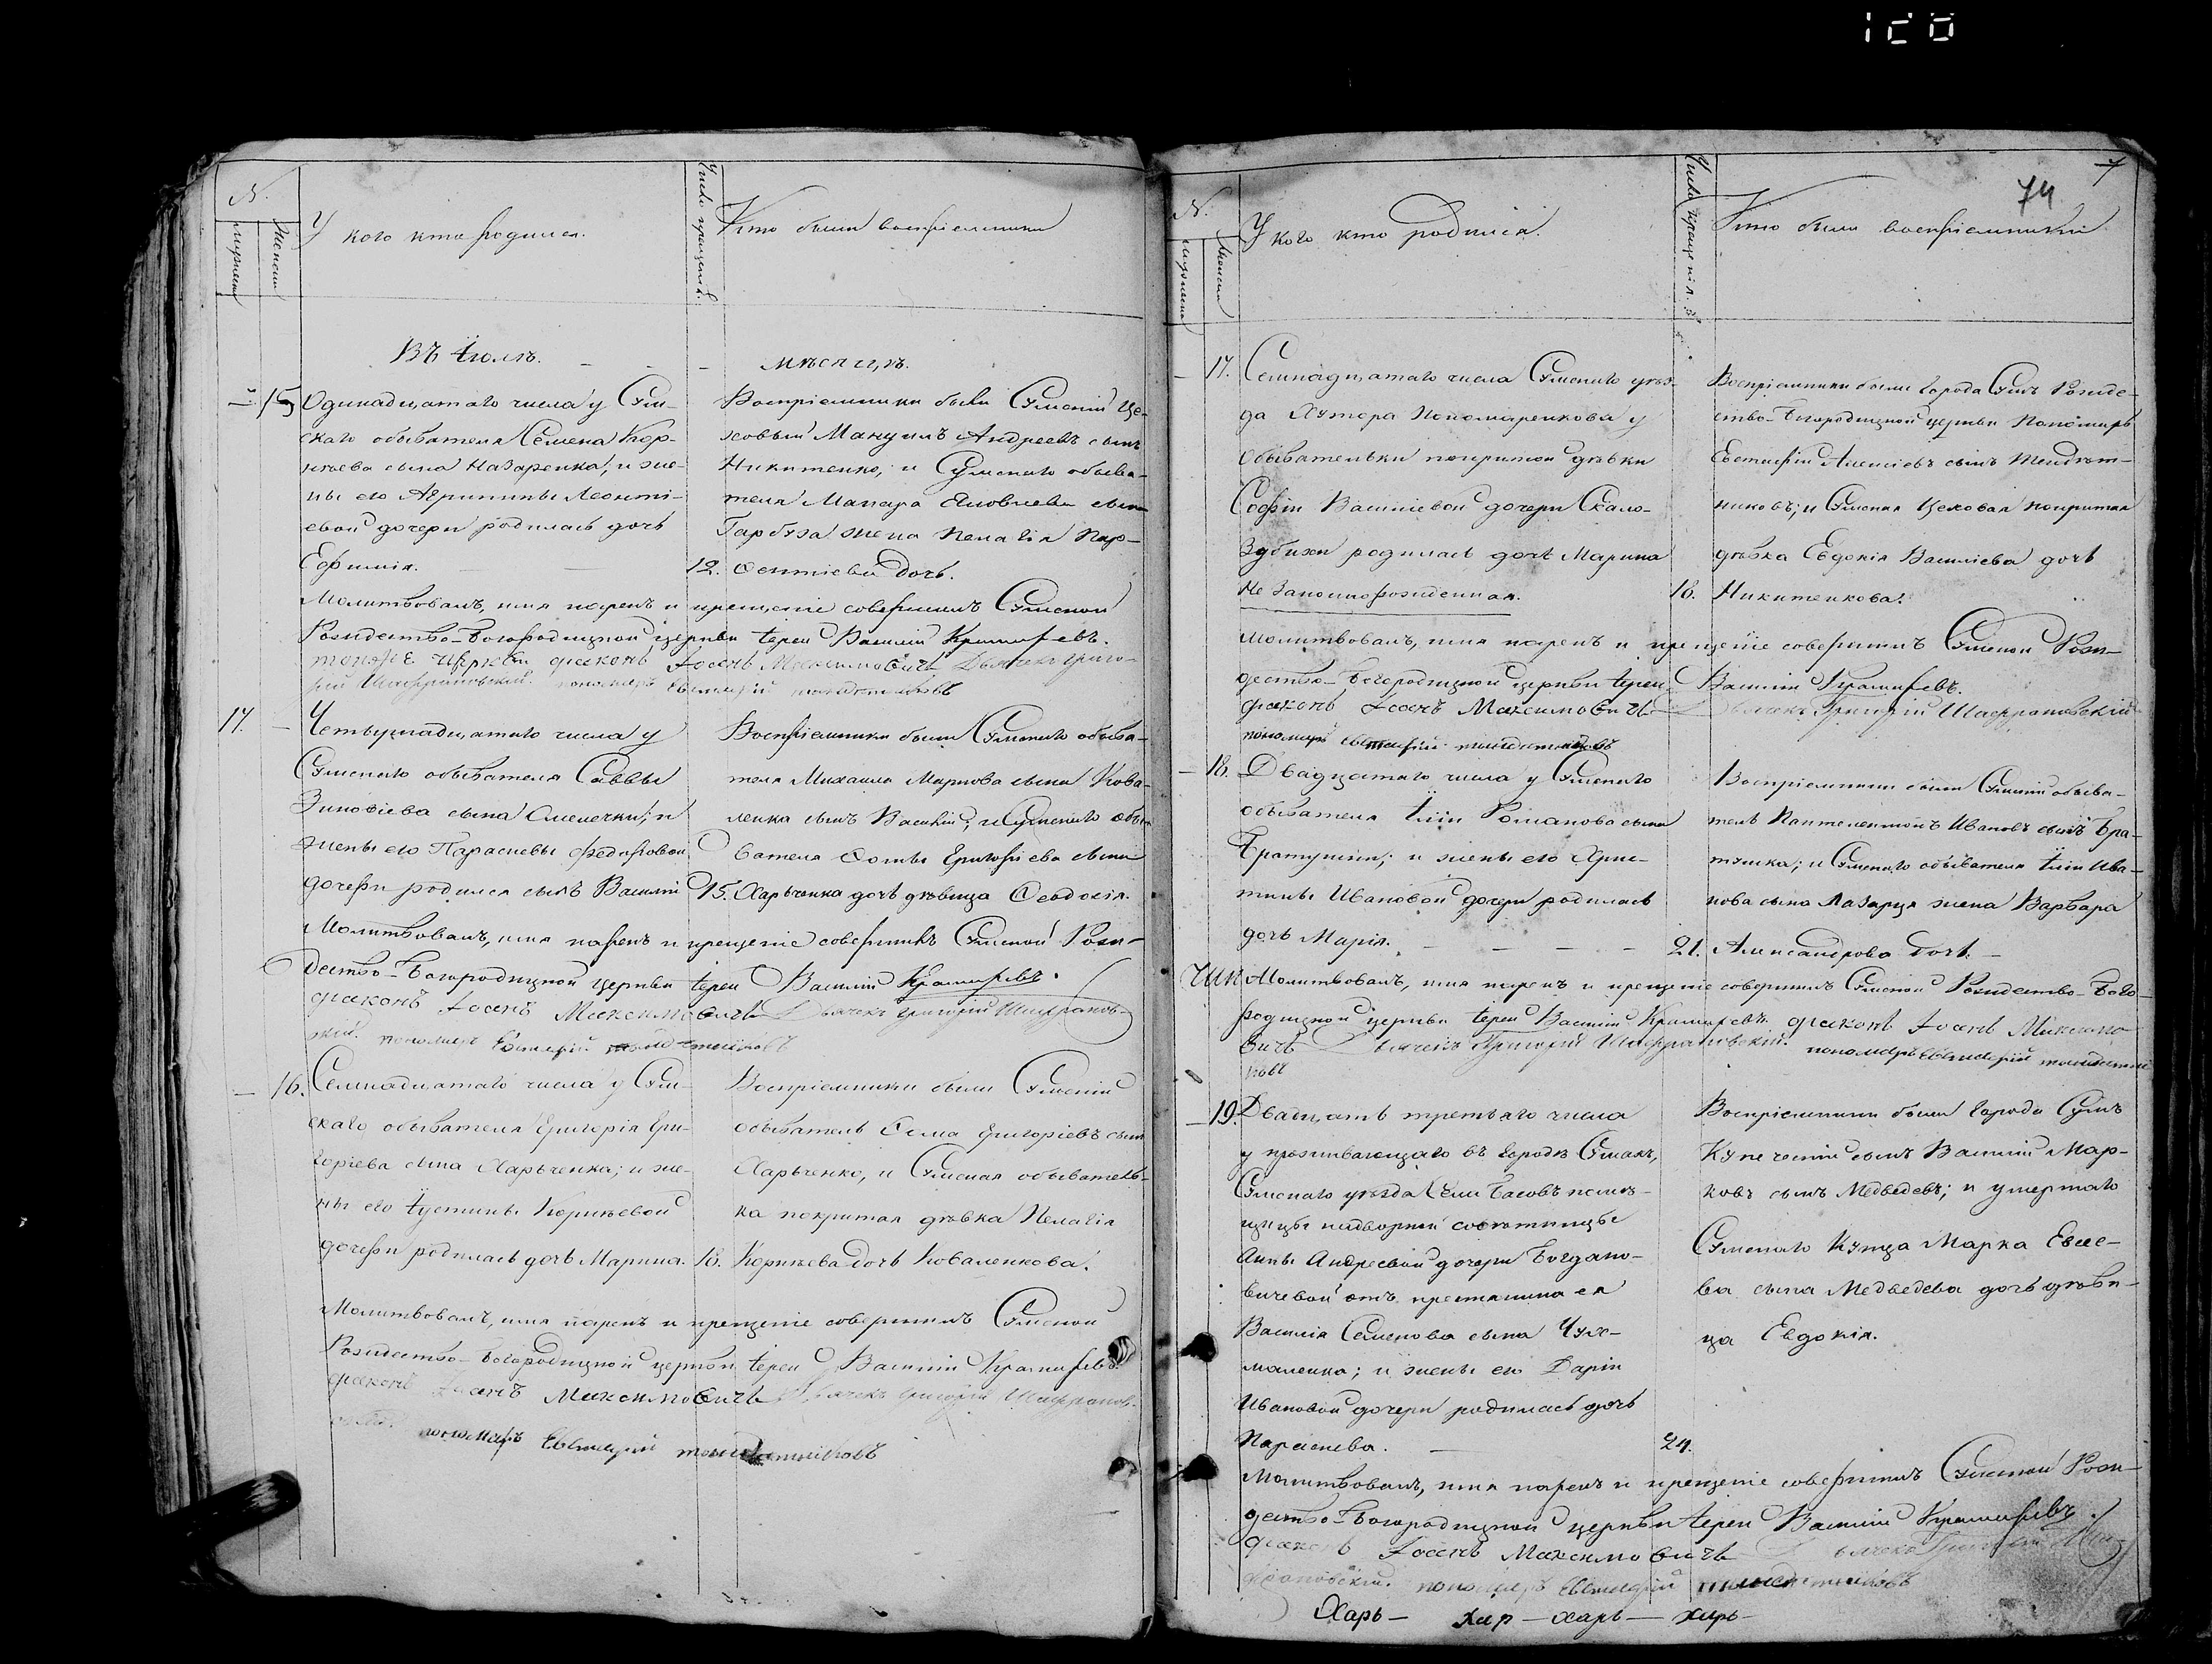 N.
Мужеска
Женска
У кого кто родился.
Число крещенія.
Кто были воспріемники
Въ Іюлѣ. - - - мѣсяцѣ.
15
Одинадцатаго числа у Сум-
скаго обывателя Семена Кор-
нѣева сына Назаренка, и же-
ны его Агрипины Леонті-
евой дочери родилась дочь
Ефимія.
12.
Воспріемники были Сумскій Це-
ховый Мануилъ Андреевъ сынъ
Никитенко, и Сумскаго обыва-
теля Макара Яковлева сына
Гарбуза жена Пелагія Пар-
фентіева дочь.
Молитвовалъ, имя нарекъ и крещеніе совершилъ Сумской
Рождество-Богородицкой церкви Іерей Василій Крамаревъ.
тояже церкви діаконъ Іоанъ Максимовичь Дьячекъ Григо-
рій Шафрановскій. пономарь Евстафій
14.
Четвернадцатаго числа у
Сумскаго обывателя Саввы
Зиновіева сына Симечки, и
жены его Параскевы Федоровой
дочери родился сынъ Василій
15.
Воспріемники были Сумскаго обыва-
теля Михаила Маркова сына Кова-
ленка сынъ Василій; и Сумскаго обы-
вателя Фомы Григоріева сына
Харьченка дочь дѣвица Феодосія.
Молитвовалъ, имя нарекъ и крещеніе совершилъ Сумской Рож-
дество-Богородицкой церкви Іерей Василій Крамаревъ.
діаконъ Іоанъ Максимовичь Дьячекъ Григорій Шафранов-
скій. пономарь Евстафій
16.
Семнадцатаго числа у Сум-
скаго обывателя Григорія Гри-
горіева сына Харьченка; и же-
ны его Іустины Корнѣевой
дочери родилась дочь Марина.
18.
Воспріемники были Сумскій
обыватель Фома Григоріевъ сынъ
Харьченко, и Сумская обыватель-
ка покрытая дѣвка Пелагія
Корнѣева дочь Коваленкова.
Молитвовалъ, имя нарекъ и крещеніе совершилъ Сумской
Рождество-Богородицкой церкви Іерей Василій Крамаревъ.
діаконъ Іоанъ Максимовичь Дьячекъ Григорій Шафранов-
скій. пономарь Евстафій
N.
Мужеска
Женска
У кого кто родился.
Число крещенія.
Кто были воспріемники
74
17.
Семнадцатаго числа Сумскаго уѣз-
да Хутора Пономаренкова у
обывательки покрытой дѣвки
Софіи Василіевой дочери Скало-
зубихи родилась дочь Марина
не законнорожденная.
18.
Воспріемники были города Сумъ Рожде-
ство-Богородицкой церкви Пономарь
Евстафій Алексіевъ сынъ
никовъ; и Сумская Цеховая покрытая
дѣвка Евдокія Василіева дочь
Никитенкова.
Молитвовалъ, имя нарекъ и крещеніе совершилъ Сумской Рож-
дество-Богородицкой церкви Іерей Василій Крамаревъ.
діаконъ Іоанъ Максимовичь Дьячекъ Григорій Шафрановскій
пономарь Евстафій
18.
Двадцатаго числа у Сумскаго
обывателя Іліи Романова сына
Братушки; и жены его Хрис-
тины Ивановой дочери родилась
дочь Марія.
21.
Воспріемники были Сумскій обыва-
тель Пантелеимонъ Ивановъ сынъ Бра-
тушка; и Сумскаго обывателя Іліи Ива-
нова сына Лазарця жена Варвара
Александрова дочь.
Молитвовалъ, имя нарекъ и крещеніе совершилъ Сумской Рождество-Бого-
родицкой церкви Іерей Василій Крамаревъ. діаконъ Іоанъ Максимо-
вичь Дьячекъ Григорій Шафрановскій. пономарь Евстафій
ковъ
19.
Двадцать третьяго числа
у проживающаго въ городѣ Сумахъ,
Сумскаго уѣзда помѣ-
щицы надворной совѣтницы
Анны Андреевой дочери Богдано-
вичевой отъ крестянина ея
Василія Семенова сына Чух-
маленка; и жены его Даріи
Ивановой дочери родилась дочь
Параскева.
24.
Воспріемники были города Сумъ
Купеческій сынъ Василій Мар-
ковъ сынъ Медведевъ; и умершаго
Сумскаго Купца Марка Евсе-
ва сына Медведева дочь дѣви-
ца Евдокія.
Молитвовалъ, имя нарекъ и крещеніе совершилъ Сумской Рож-
дество-Богородицкой церкви Іерей Василій Крамаревъ.
діаконъ Іоанъ Максимовичь Дьячекъ Григорій Ша-
франовскій. пономарь Евстафій
Харь- хар-харь-харь-